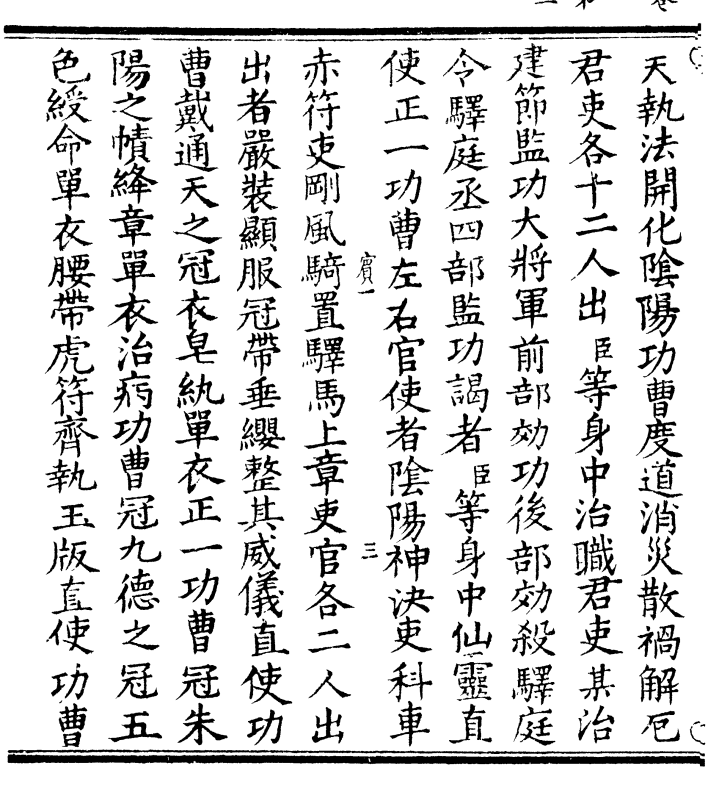 天執法開化陰陽功曹度道消災散禍解厄
君吏各十二人出臣等身中治職君吏某治
建節監功大將軍前部効功後部効殺驛庭
令驛庭丞四部監功謁者臣等身中仙靈直
使正一功曹左右官使者陰陽神決吏科車
賓一
三
赤符吏剛風騎置驛馬上章吏官各二人出
出者嚴裝顯服冠帶垂纓整其威儀直使功
曹戴通天之冠衣皂紈單衣正一功曹冠朱
陽之幘絳章單衣治病功曹冠九德之冠五
色綬命單衣腰帶虎符齊執玉版直使功曹